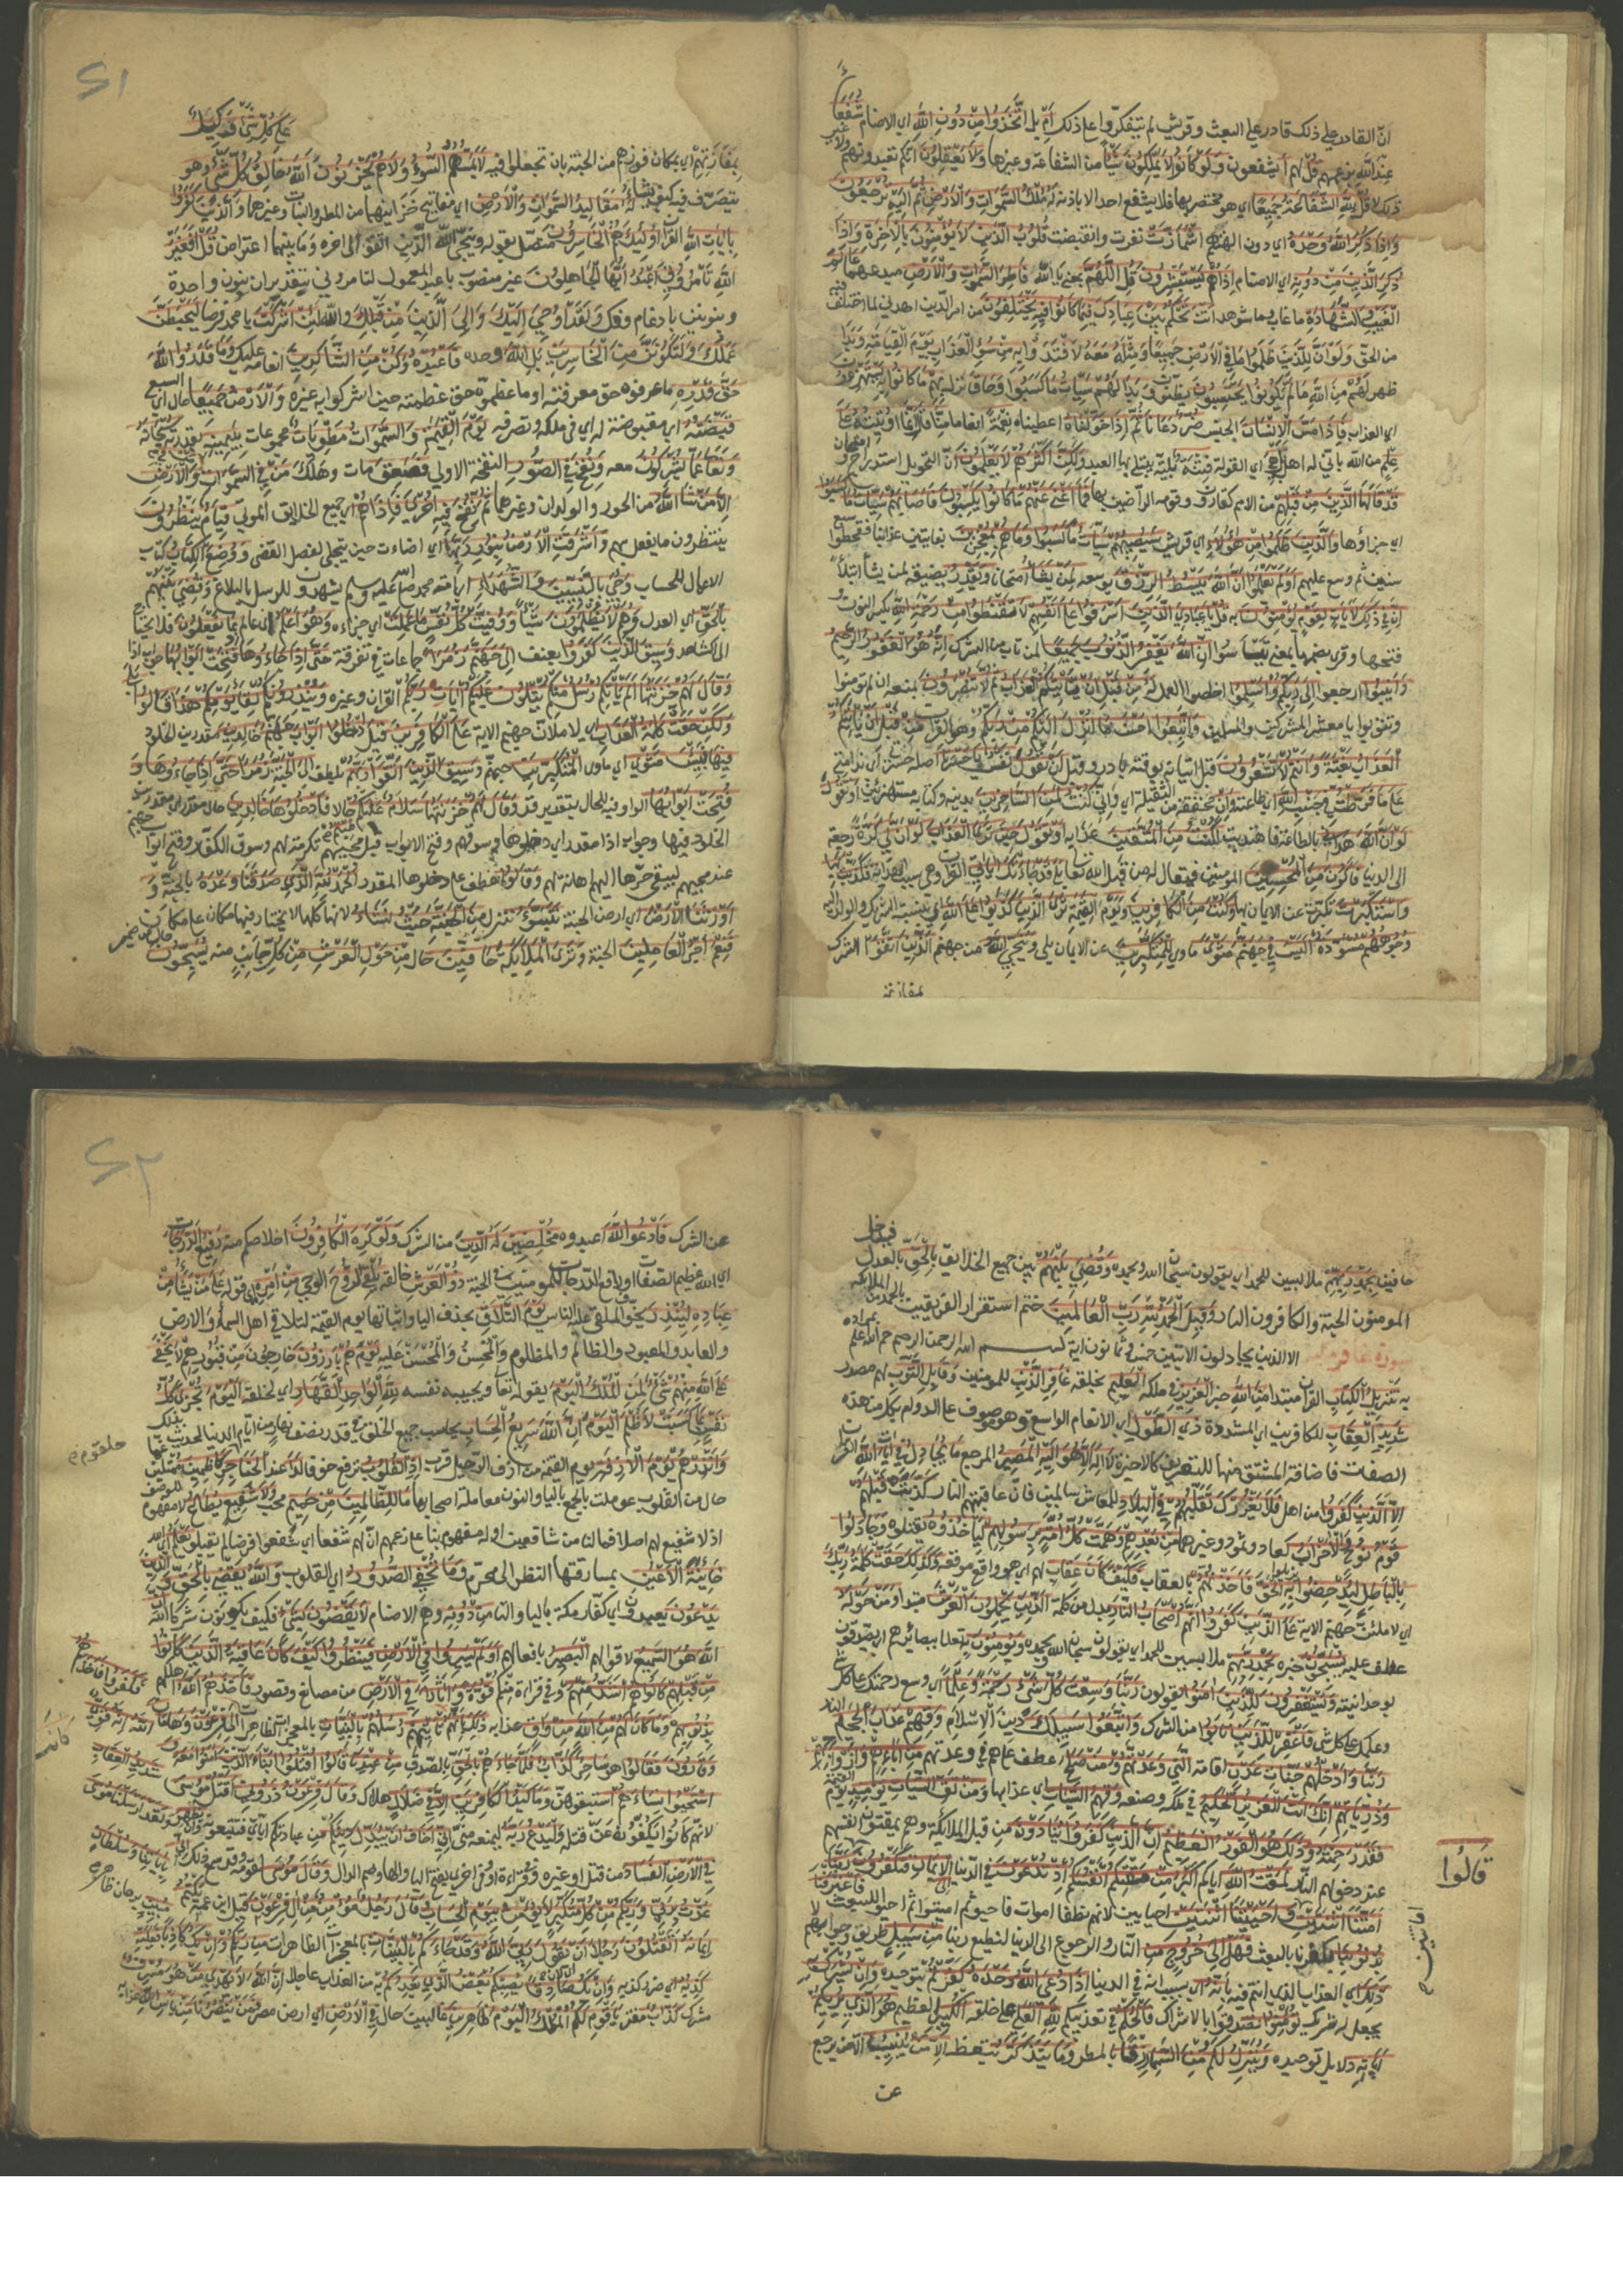 انّ القادر على ذلك قادر على البعث وقريش لم يتفكروا فى ذلك اَمِ بل اتَّخَذُوا مِنْ دُونِ اللّٰهِ اى الاصنام شُفَعَاءَ
عند الله بزعمهم قُلْ لهم أيشفعون وَلَوْ كَانُوا لَا يَمْلِكُونَ شَيْئًا من الشفاعة وغيرها وَلَا يَعْقِلُونَ انكم تعبدونهم ولا غير
ذلك لا قُلْ لِلّٰهِ الشَّفَاعَةُ جَمِيعًا اى هو مختص بها فلا يشفع احد الا باذنه لَهُ مُلْكُ السَّمٰوَاتِ وَالْاَرْضِ ثُمَّ اِلَيْهِ تُرْجَعُونَ
وَاِذَا ذُكِرَ اللّٰهُ وَحْدَهُ اى دون الهتهم اشْمَأَزَّتْ نفرت وانقبضت قُلُوبُ الَّذِينَ لَا يُؤْمِنُونَ بِالْاٰخِرَةِ وَاِذَا
ذُكِرَ الَّذِينَ مِنْ دُونِهِ اى الاصنام اِذَا هُمْ يَسْتَبْشِرُونَ قُلِ اللّٰهُمَّ بمعنى يا الله فَاطِرَ السَّمٰوَاتِ وَالْاَرْضِ مبدعهما عَالِمَ
الْغَيْبِ وَالشَّهَادَةِ ما غاب وما شوهد اَنْتَ تَحْكُمُ بَيْنَ عِبَادِكَ فِيمَا كَانُوا فِيهِ يَخْتَلِفُونَ من امر الدين اهدنى لما اختلف فيه
من الحق وَلَوْ اَنَّ لِلَّذِينَ ظَلَمُوا مَا فِى الْاَرْضِ جَمِيعًا وَمِثْلَهُ مَعَهُ لَافْتَدَوْا بِهِ مِنْ سُوءِ الْعَذَابِ يَوْمَ الْقِيٰمَةِ وَبَدَا
ظهر لَهُمْ مِنَ اللّٰهِ مَا لَمْ يَكُونُوا يَحْتَسِبُونَ يظنون وَبَدَا لَهُمْ سَيِّئَاتُ مَا كَسَبُوا وَحَاقَ نزل بِهِمْ مَا كَانُوا بِهِ يَسْتَهْزِءُونَ
اى العذاب فَاِذَا مَسَّ الْاِنْسَانَ الجنس ضُرٌّ دَعَانَا ثُمَّ اِذَا خَوَّلْنَاهُ اعطيناه نِعْمَةً انعاما مِنَّا قَالَ اِنَّمَا اُوتِيتُهُ عَلٰى
عِلْمٍ من الله بانى له اهل بَلْ هِىَ اى القولة فِتْنَةٌ بلية يبتلى بها العبد وَلٰكِنَّ اَكْثَرَهُمْ لَا يَعْلَمُونَ ان التخويل استدراج وامتحان
قَدْ قَالَهَا الَّذِينَ مِنْ قَبْلِهِمْ من الامم كقارون وقومه الراضين بها فَمَا اَغْنٰى عَنْهُمْ مَا كَانُوا يَكْسِبُونَ فَاَصَابَهُمْ سَيِّئَاتُ مَا كَسَبُوا
اى جزاؤها وَالَّذِينَ ظَلَمُوا مِنْ هٰؤُلَاءِ اى قريش سَيُصِيبُهُمْ سَيِّئَاتُ مَا كَسَبُوا وَمَا هُمْ بِمُعْجِزِينَ بفايتين عذابنا فقحطوا سبع
سنين ثم وسع عليهم اَوَلَمْ يَعْلَمُوا اَنَّ اللّٰهَ يَبْسُطُ الرِّزْقَ يوسعه لِمَنْ يَشَاءُ امتحانا وَيَقْدِرُ يضيقه لمن يشاء ابتلاء
اِنَّ فِى ذٰلِكَ لَاٰيَاتٍ لِقَوْمٍ يُؤْمِنُونَ به قُلْ يَا عِبَادِىَ الَّذِينَ اَسْرَفُوا عَلٰى اَنْفُسِهِمْ لَا تَقْنَطُوا مِنْ رَحْمَةِ اللّٰهِ بكسر النون و
فتحها وقرئ بضمها بمعنى تيأسوا اِنَّ اللّٰهَ يَغْفِرُ الذُّنُوبَ جَمِيعًا لمن تاب من الشرك اِنَّهُ هُوَ الْغَفُورُ الرَّحِيمُ
وَاَنِيبُوا ارجعوا اِلٰى رَبِّكُمْ وَاَسْلِمُوا اخلصوا العمل لَهُ مِنْ قَبْلِ اَنْ يَأْتِيَكُمُ الْعَذَابُ ثُمَّ لَا تُنْصَرُونَ بمنعه ان لم تومنوا
وتتوبوا يا معشر المشركين والمسلمين وَاتَّبِعُوا اَحْسَنَ مَا اُنْزِلَ اِلَيْكُمْ مِنْ رَبِّكُمْ وهو القران مِنْ قَبْلِ اَنْ يَأْتِيَكُمُ
الْعَذَابُ بَغْتَةً وَاَنْتُمْ لَا تَشْعُرُونَ قبل اتيانه بوقته بادروا قبل اَنْ تَقُولَ نَفْسٌ يَا حَسْرَتَا اصله حسرتى اى ندامتى
عَلٰى مَا فَرَّطْتُ فِى جَنْبِ اللّٰهِ اى طاعته وَاِنْ مخففة من الثقيلة اى وانى كُنْتُ لَمِنَ السَّاخِرِينَ بدينه وكتابه مستهزئين اَوْ تَقُولَ
لَوْ اَنَّ اللّٰهَ هَدَانِى بالطاعة فاهتديت لَكُنْتُ مِنَ الْمُتَّقِينَ عذابه اَوْ تَقُولَ حِينَ تَرَى الْعَذَابَ لَوْ اَنَّ لِى كَرَّةً رجعة
الى الدنيا فَاَكُونَ مِنَ الْمُحْسِنِينَ المومنين فيقال له من قبل الله تعالى بَلٰى قَدْ جَاءَتْكَ اٰيَاتِى القران وهى سبب الهداية فَكَذَّبْتَ بِهَا
وَاسْتَكْبَرْتَ تكبرت عن الايمان بها وَكُنْتَ مِنَ الْكَافِرِينَ وَيَوْمَ الْقِيٰمَةِ تَرَى الَّذِينَ كَذَبُوا عَلَى اللّٰهِ بنسبة الشريك والولد اليه
وُجُوهُهُمْ مُسْوَدَّةٌ اَلَيْسَ فِى جَهَنَّمَ مَثْوًى ماوى لِلْمُتَكَبِّرِينَ عن الايمان بلى وَيُنَجِّى اللّٰهُ من جهنم الَّذِينَ اتَّقَوْا الشرك
بمفازتهم
51
عَلٰى كُلِّ شَىْءٍ وَكِيلٌ
بِمَفَازَتِهِمْ اى بمكان فوزهم من الجنة بان يجعلوا فيه لَا يَمَسُّهُمُ السُّوءُ وَلَا هُمْ يَحْزَنُونَ اَللّٰهُ خَالِقُ كُلِّ شَىْءٍ وَهُوَ
يتصرف فيه كيف يشاء لَهُ مَقَالِيدُ السَّمٰوَاتِ وَالْاَرْضِ اى مفاتيح خزاينهما من المطر والنبات وغيرها وَالَّذِينَ كَفَرُوا
بِاٰيَاتِ اللّٰهِ القران اُولٰئِكَ هُمُ الْخَاسِرُونَ متصل بقوله وينجى الله الذين اتقوا الى اخره وما بينهما اعتراض قُلْ اَفَغَيْرَ
اللّٰهِ تَأْمُرُونِّى اَعْبُدُ اَيُّهَا الْجَاهِلُونَ غير منصوب باعبد المعمول لتامرونى بتقدير ان بنون واحدة
وبنونين بادغام وفك وَلَقَدْ اُوحِىَ اِلَيْكَ وَاِلَى الَّذِينَ مِنْ قَبْلِكَ والله لَئِنْ اَشْرَكْتَ يا محمد فرضا لَيَحْبَطَنَّ
عَمَلُكَ وَلَتَكُونَنَّ مِنَ الْخَاسِرِينَ بَلِ اللّٰهَ وحده فَاعْبُدْ وَكُنْ مِنَ الشَّاكِرِينَ انعامه عليك وَمَا قَدَرُوا اللّٰهَ
حَقَّ قَدْرِهِ ما عرفوه حق معرفته او ما عظموه حق عظمته حين اشركوا به غيره وَالْاَرْضُ جَمِيعًا حال اى السبع
قَبْضَتُهُ اى مقبوضة له اى فى ملكه وتصرفه يَوْمَ الْقِيٰمَةِ وَالسَّمٰوَاتُ مَطْوِيَّاتٌ مجموعات بِيَمِينِهِ بقدرته سُبْحَانَهُ
وَتَعَالٰى عَمَّا يُشْرِكُونَ معه وَنُفِخَ فِى الصُّورِ النفخة الاولى فَصَعِقَ مات وهلك مَنْ فِى السَّمٰوَاتِ وَمَنْ فِى الْاَرْضِ
اِلَّا مَنْ شَاءَ اللّٰهُ من الحور والولدان وغيرهما ثُمَّ نُفِخَ فِيهِ اُخْرٰى فَاِذَا هُمْ اى جميع الخلايق الموتى قِيَامٌ يَنْظُرُونَ
ينتظرون ما يفعل بهم وَاَشْرَقَتِ الْاَرْضُ بِنُورِ رَبِّهَا اى اضاءت حين يتجلى لفصل القضى وَوُضِعَ الْكِتَابُ كتاب
الاعمال للحساب وَجِىءَ بِالنَّبِيِّينَ وَالشُّهَدَاءِ اى امة محمد صلى الله عليه وسلم يشهدون للرسل بالبلاغ وَقُضِىَ بَيْنَهُمْ
بِالْحَقِّ اى العدل وَهُمْ لَا يُظْلَمُونَ شيئا وَوُفِّيَتْ كُلُّ نَفْسٍ مَا عَمِلَتْ اى جزاءه وَهُوَ اَعْلَمُ اى عالم بِمَا يَفْعَلُونَ فلا يحتاج
الى شاهد وَسِيقَ الَّذِينَ كَفَرُوا بعنف اِلٰى جَهَنَّمَ زُمَرًا جماعات فى تفرقة حَتّٰى اِذَا جَاءُوهَا فُتِحَتْ اَبْوَابُهَا جواب اذا
وَقَالَ لَهُمْ خَزَنَتُهَا اَلَمْ يَأْتِكُمْ رُسُلٌ مِنْكُمْ يَتْلُونَ عَلَيْكُمْ اٰيَاتِ رَبِّكُمْ القران وغيره وَيُنْذِرُونَكُمْ لِقَاءَ يَوْمِكُمْ هٰذَا قَالُوا بَلٰى
وَلٰكِنْ حَقَّتْ كَلِمَةُ الْعَذَابِ اى لاملان جهنم الاية عَلَى الْكَافِرِينَ قِيلَ ادْخُلُوا اَبْوَابَ جَهَنَّمَ خَالِدِينَ مقدرين الخلود
فِيهَا فَبِئْسَ مَثْوَى اى ماوى الْمُتَكَبِّرِينَ جهنم وَسِيقَ الَّذِينَ اتَّقَوْا رَبَّهُمْ بلطف اِلَى الْجَنَّةِ زُمَرًا حَتّٰى اِذَا جَاءُوهَا وَ
فُتِحَتْ اَبْوَابُهَا الواو فيه للحال بتقدير قد وَقَالَ لَهُمْ خَزَنَتُهَا سَلَامٌ عَلَيْكُمْ طِبْتُمْ حالا فَادْخُلُوهَا خَالِدِينَ حال مقدرا مقدرين
الخلود فيها وجواب اذا مقدر اى دخلوها وسوقهم وفتح الابواب قبل مجيئهم تكرمة لهم وسوق الكفار وفتح ابواب جهنم
عند مجيهم ليبقى حرها اليهم اهانة لهم وَقَالُوا عطف على دخلوها المقدر الْحَمْدُ لِلّٰهِ الَّذِى صَدَقَنَا وَعْدَهُ بالجنة وَ
اَوْرَثَنَا الْاَرْضَ اى ارض الجنة نَتَبَوَّءُ ننزل مِنَ الْجَنَّةِ حَيْثُ نَشَاءُ لانها كلها لا يختار فيها مكان على مكان
فَنِعْمَ اَجْرُ الْعَامِلِينَ الجنة وَتَرَى الْمَلٰئِكَةَ حَافِّينَ حال مِنْ حَوْلِ الْعَرْشِ من كل جانب منه يُسَبِّحُونَ حال من ضمير
حافين بِحَمْدِ رَبِّهِمْ ملابسين للحمد اى يقولون سبحان الله وبحمده وَقُضِىَ بَيْنَهُمْ بين جميع الخلايق بِالْحَقِّ بالعدل فيدخل
المومنون الجنة والكافرون النار وَقِيلَ الْحَمْدُ لِلّٰهِ رَبِّ الْعَالَمِينَ ختم استقرار الفريقين بالحمد من الملائكة
سورة غافر مكية الا الذين يجادلون الايتين خمس وثمانون اية بسم الله الرحمن الرحيم حم الله اعلم بمراده
به تَنْزِيلُ الْكِتَابِ القران مبتدا مِنَ اللّٰهِ خبر الْعَزِيزِ فى ملكه الْعَلِيمِ بخلقه غَافِرِ الذَّنْبِ للمومنين وَقَابِلِ التَّوْبِ لهم مصدر
شَدِيدِ الْعِقَابِ للكافرين اى المشددة ذِى الطَّوْلِ اى الانعام الواسع وهو موصوف على الدوام بكل من هذه
الصفات فاضافة المشتق منها للتعريف كالاخيرة لَا اِلٰهَ اِلَّا هُوَ اِلَيْهِ الْمَصِيرُ المرجع مَا يُجَادِلُ فِى اٰيَاتِ اللّٰهِ القران
اِلَّا الَّذِينَ كَفَرُوا من اهل مكة فَلَا يَغْرُرْكَ تَقَلُّبُهُمْ فِى الْبِلَادِ للمعاش سالمين فان عاقبتهم النار كَذَّبَتْ قَبْلَهُمْ
قَوْمُ نُوحٍ وَالْاَحْزَابُ كعاد وثمود وغيرهما مِنْ بَعْدِهِمْ وَهَمَّتْ كُلُّ اُمَّةٍ بِرَسُولِهِمْ لِيَأْخُذُوهُ يقتلوه وَجَادَلُوا
بِالْبَاطِلِ لِيُدْحِضُوا يزيلوا بِهِ الْحَقَّ فَاَخَذْتُهُمْ بالعقاب فَكَيْفَ كَانَ عِقَابِ لهم اى هو واقع موقعه وَكَذٰلِكَ حَقَّتْ كَلِمَةُ رَبِّكَ
اى لاملئن جهنم الاية عَلَى الَّذِينَ كَفَرُوا اَنَّهُمْ اَصْحَابُ النَّارِ بدل من كلمة اَلَّذِينَ يَحْمِلُونَ الْعَرْشَ مبتدا وَمَنْ حَوْلَهُ
عطف عليه يُسَبِّحُونَ خبره بِحَمْدِ رَبِّهِمْ ملابسين للحمد اى يقولون سبحان الله وبحمده وَيُؤْمِنُونَ بِهِ تعالى ببصائرهم اى يصدقون
بوحدانيته وَيَسْتَغْفِرُونَ لِلَّذِينَ اٰمَنُوا يقولون رَبَّنَا وَسِعْتَ كُلَّ شَىْءٍ رَحْمَةً وَعِلْمًا اى وسع رحمتك كل شى
وعلمك كل شى فَاغْفِرْ لِلَّذِينَ تَابُوا من الشرك وَاتَّبَعُوا سَبِيلَكَ دين الاسلام وَقِهِمْ عَذَابَ الْجَحِيمِ النار
رَبَّنَا وَاَدْخِلْهُمْ جَنَّاتِ عَدْنٍ اقامة الَّتِى وَعَدْتَهُمْ وَمَنْ صَلَحَ عطف على هم فى وعدتهم مِنْ اٰبَائِهِمْ وَاَزْوَاجِهِمْ
وَذُرِّيَّاتِهِمْ اِنَّكَ اَنْتَ الْعَزِيزُ الْحَكِيمُ فى ملكه وصنعه وَقِهِمُ السَّيِّئَاتِ اى عذابها وَمَنْ تَقِ السَّيِّئَاتِ يَوْمَئِذٍ يوم القيمة
فَقَدْ رَحِمْتَهُ وَذٰلِكَ هُوَ الْفَوْزُ الْعَظِيمُ اِنَّ الَّذِينَ كَفَرُوا يُنَادَوْنَ من قبل الملائكة وهم يمقتون انفسهم
عند دخولهم النار لَمَقْتُ اللّٰهِ اياكم اَكْبَرُ مِنْ مَقْتِكُمْ اَنْفُسَكُمْ اِذْ تُدْعَوْنَ فى الدنيا اِلَى الْاِيمَانِ فَتَكْفُرُونَ
قَالُوا
اَمَتَّنَا اثْنَتَيْنِ وَاَحْيَيْتَنَا اثْنَتَيْنِ احيايين لانهم نطفا اموات فاحيوا ثم اميتوا ثم احيوا للبعث فَاعْتَرَفْنَا
بِذُنُوبِنَا بكفرنا بالبعث فَهَلْ اِلٰى خُرُوجٍ من النار والرجوع الى الدنيا لنطيع ربنا مِنْ سَبِيلٍ طريق وجوابهم لا
ذٰلِكُمْ اى العذاب الذى انتم فيه بِاَنَّهُ اى بسبب انه فى الدنيا اِذَا دُعِىَ اللّٰهُ وَحْدَهُ كَفَرْتُمْ بتوحيده وَاِنْ يُشْرَكْ بِهِ
يجعل له شريك تُؤْمِنُوا تصدقوا بالاشراك فَالْحُكْمُ فى تعذيبكم لِلّٰهِ الْعَلِىِّ على خلقه الْكَبِيرِ العظيم هُوَ الَّذِى يُرِيكُمْ
اٰيَاتِهِ دلايل توحيده وَيُنَزِّلُ لَكُمْ مِنَ السَّمَاءِ رِزْقًا بالمطر وَمَا يَتَذَكَّرُ يتعظ اِلَّا مَنْ يُنِيبُ يرجع
عن
52
عن الشرك فَادْعُوا اللّٰهَ اعبدوه مُخْلِصِينَ لَهُ الدِّينَ من الشرك وَلَوْ كَرِهَ الْكَافِرُونَ اخلاصكم منه رَفِيعُ الدَّرَجَاتِ
اى الله عظيم الصفات او رافع الدرجات المومنين فى الجنة ذُو الْعَرْشِ خالقه يُلْقِى الرُّوحَ الوحى مِنْ اَمْرِهِ اى قوله عَلٰى مَنْ يَشَاءُ مِنْ
عِبَادِهِ لِيُنْذِرَ يخوف الملقى عليه الناس يَوْمَ التَّلَاقِ بحذف اليا واثباتها يوم القيمة لتلاقى اهل السماء والارض
والعابد والمعبود والظالم والمظلوم يَوْمَ هُمْ بَارِزُونَ خارجون من قبورهم لَا يَخْفٰى
عَلَى اللّٰهِ مِنْهُمْ شَىْءٌ لِمَنِ الْمُلْكُ الْيَوْمَ يقوله تعالى ويجيب نفسه لِلّٰهِ الْوَاحِدِ الْقَهَّارِ اى لخلقه اَلْيَوْمَ تُجْزٰى كُلُّ
نَفْسٍ بِمَا كَسَبَتْ لَا ظُلْمَ الْيَوْمَ اِنَّ اللّٰهَ سَرِيعُ الْحِسَابِ يحاسب جميع الخلق فى قدر نصف نهار من ايام الدنيا لحديث بذلك
وَاَنْذِرْهُمْ يَوْمَ الْاٰزِفَةِ يوم القيمة من ازف الرحيل قرب اِذِ الْقُلُوبُ ترتفع خوفا لَدَى عند الْحَنَاجِرِ كَاظِمِينَ ممتلئين غما
حلقوم
حال من القلوب عوملت بالجمع باليا والنون معاملة اصحابها مَا لِلظَّالِمِينَ مِنْ حَمِيمٍ محب وَلَا شَفِيعٍ يُطَاعُ لا مفهوم للوصف
اذ لا شفيع لهم اصلا فما لنا من شافعين او له مفهوم بنا على زعمهم ان لهم شفعا اى شفعوا فرضا لم يقبلوا يَعْلَمُ اى الله
خَائِنَةَ الْاَعْيُنِ بمسارقتها النظر الى محرم وَمَا تُخْفِى الصُّدُورُ اى القلوب وَاللّٰهُ يَقْضِى بِالْحَقِّ وَالَّذِينَ
يَدْعُونَ يعبدون اى كفار مكة باليا والتا مِنْ دُونِهِ وهم الاصنام لَا يَقْضُونَ بِشَىْءٍ فكيف يكونون شركا لله
اِنَّ اللّٰهَ هُوَ السَّمِيعُ لاقوالهم الْبَصِيرُ بافعالهم اَوَلَمْ يَسِيرُوا فِى الْاَرْضِ فَيَنْظُرُوا كَيْفَ كَانَ عَاقِبَةُ الَّذِينَ كَانُوا
مِنْ قَبْلِهِمْ كَانُوا هُمْ اَشَدَّ مِنْهُمْ وفى قراءة منكم قُوَّةً وَاٰثَارًا فِى الْاَرْضِ من مصانع وقصور فَاَخَذَهُمُ اللّٰهُ اهلكهم
بِذُنُوبِهِمْ وَمَا كَانَ لَهُمْ مِنَ اللّٰهِ مِنْ وَاقٍ عذابه ذٰلِكَ بِاَنَّهُمْ كَانَتْ تَأْتِيهِمْ رُسُلُهُمْ بِالْبَيِّنَاتِ بالمعجزات الظاهرات فَكَفَرُوا فَاَخَذَهُمُ
وَقَارُونَ فَقَالُوا هو سَاحِرٌ كَذَّابٌ فَلَمَّا جَاءَهُمْ بِالْحَقِّ بالصدق مِنْ عِنْدِنَا قَالُوا اقْتُلُوا اَبْنَاءَ الَّذِينَ اٰمَنُوا مَعَهُ وَ
اسْتَحْيُوا نِسَاءَهُمْ استبقوهن وَمَا كَيْدُ الْكَافِرِينَ اِلَّا فِى ضَلَالٍ هلاك وَقَالَ فِرْعَوْنُ ذَرُونِى اَقْتُلْ مُوسٰى
لانهم كانوا يكفونه عن قتله وَلْيَدْعُ رَبَّهُ ليمنعه منى اِنِّى اَخَافُ اَنْ يُبَدِّلَ دِينَكُمْ من عبادتكم اياى فتتبعوه وَاَنْ يُظْهِرَ
فِى الْاَرْضِ الْفَسَادَ من قتل او غيره وفى قراءة او وفى اخرى بفتح اليا والها وضم الدال وَقَالَ مُوسٰى لقومه وقد سمع ذلك اِنِّى
عُذْتُ بِرَبِّى وَرَبِّكُمْ مِنْ كُلِّ مُتَكَبِّرٍ لَا يُؤْمِنُ بِيَوْمِ الْحِسَابِ وَقَالَ رَجُلٌ مُؤْمِنٌ مِنْ اٰلِ فِرْعَوْنَ قيل ابن عمه يَكْتُمُ
اِيمَانَهُ اَتَقْتُلُونَ رَجُلًا اَنْ يَقُولَ رَبِّىَ اللّٰهُ وَقَدْ جَاءَكُمْ بِالْبَيِّنَاتِ بالمعجزات الظاهرات مِنْ رَبِّكُمْ وَاِنْ يَكُ كَاذِبًا فَعَلَيْهِ
كَذِبُهُ اى ضرر كذبه وَاِنْ يَكُ صَادِقًا يُصِبْكُمْ بَعْضُ الَّذِى يَعِدُكُمْ به من العذاب عاجلا اِنَّ اللّٰهَ لَا يَهْدِى مَنْ هُوَ مُسْرِفٌ
مشرك كَذَّابٌ مفتر يَا قَوْمِ لَكُمُ الْمُلْكُ الْيَوْمَ ظَاهِرِينَ غالبين حال فِى الْاَرْضِ اى ارض مصر فَمَنْ يَنْصُرُنَا مِنْ بَأْسِ اللّٰهِ عذابه